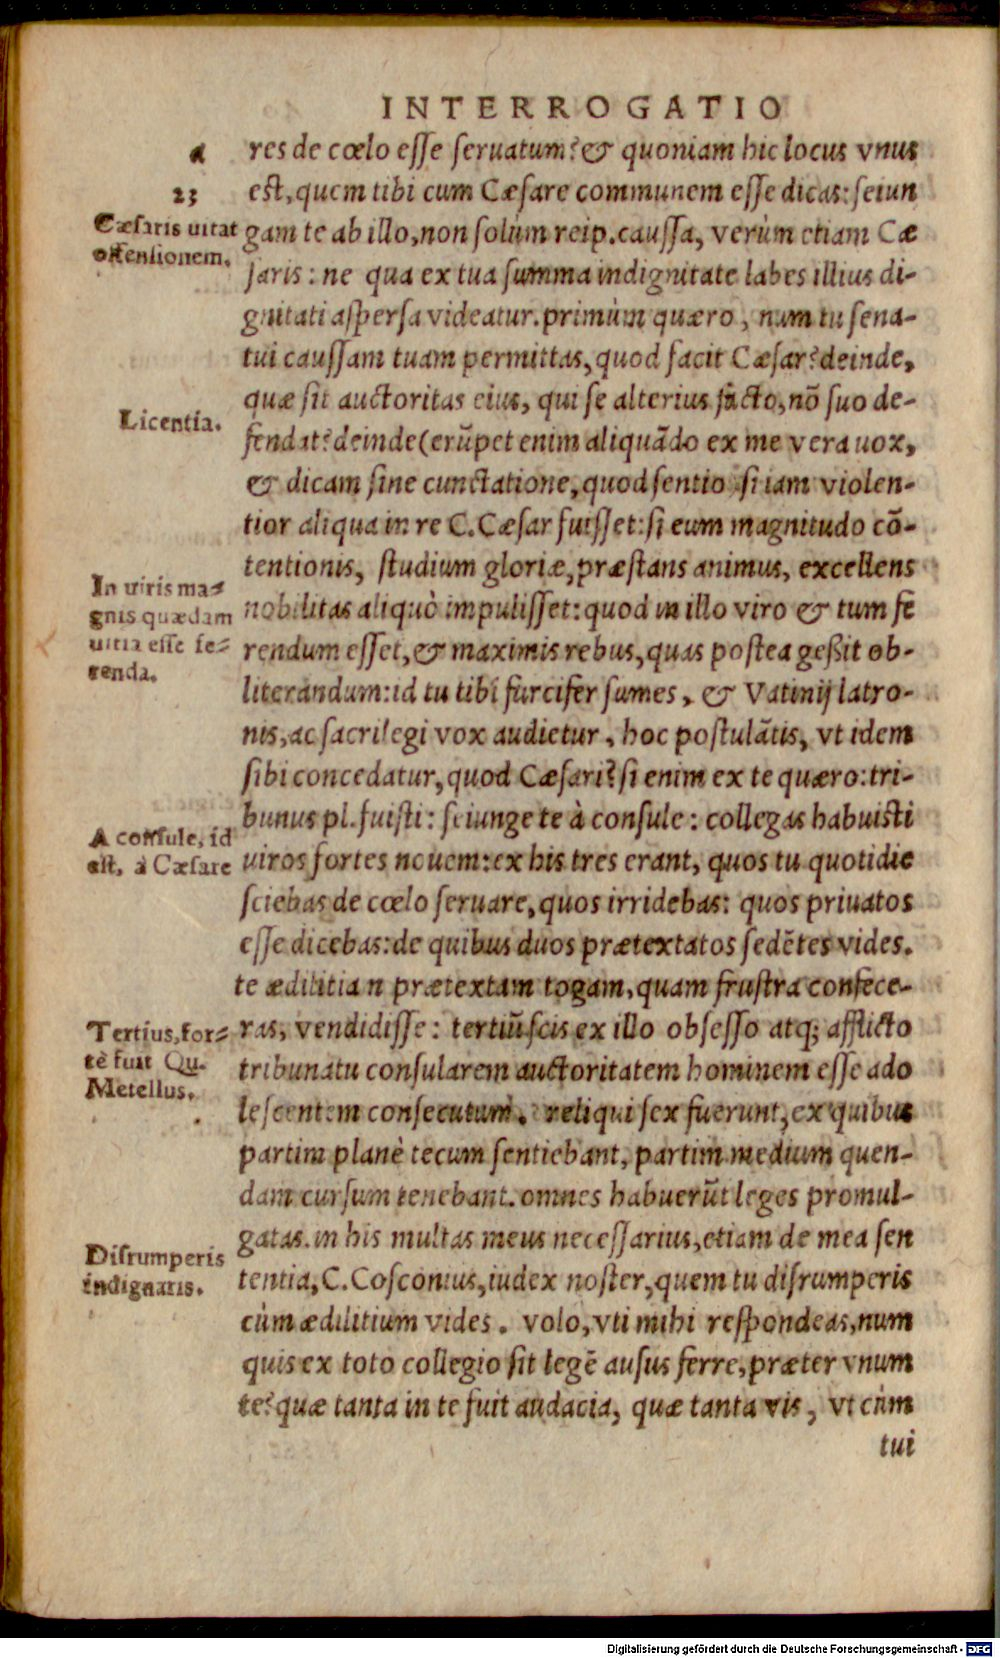 INTERROGATIO
a
23
Cæsaris uitat
offensionem.
Licentia.
In uiris ma-
gnis quædam
uitia esse fe-
renda.
A consule, id
est, à Cæsare
Tertius, for-
tè fuit Qu.
Metellus.
Disrumperis
indignaris.
res de cœlo esse seruatum? & quoniam hic locus vnus
est, quem tibi cum Cæsare communem esse dicas: seiun
gam te ab illo, non solùm reip. caussa, verùm etiam Cæ
saris: ne qua ex tua summa indignitate labes illius di-
gnitati aspersa videatur. primùm quæro, num tu sena-
tui caussam tuam permittas, quod facit Cæsar? deinde,
quæ sit auctoritas eius, qui se alterius facto, nō suo de-
fendat? deinde (erūpet enim aliquādo ex me vera uox,
& dicam sine cunctatione, quod sentio si iam violen-
tior aliqua in re C. Cæsar fuisset: si eum magnitudo cō-
tentionis, studium gloriæ, præstans animus, excellens
nobilitas aliquò impulisset: quod in illo viro & tum fe
rendum esset, & maximis rebus, quas postea geßit ob-
literandum: id tu tibi furcifer sumes, & Vatinij latro-
nis, ac sacrilegi vox audietur, hoc postulātis, vt idem
sibi concedatur, quod Cæsari? si enim ex te quæro: tri-
bunus pl. fuisti: seiunge te à consule: collegas habuisti
uiros fortes nouem: ex his tres erant, quos tu quotidie
sciebas de cœlo seruare, quos irridebas: quos priuatos
esse dicebas: de quibus duos prætextatos sedētes vides.
te ædilitian prætextam togam, quam frustra confece-
ras, vendidisse: tertiū scis ex illo obsesso atq; afflicto
tribunatu consularem auctoritatem hominem esse ado
lescentem consecutum. reliqui sex fuerunt, ex quibus
partim planè tecum sentiebant, partim medium quen-
dam cursum tenebant. omnes habuerūt leges promul-
gatas. in his multas meus necessarius, etiam de mea sen
tentia, C. Cosconius, iudex noster, quem tu disrumperis
cùm ædilitium vides. volo, vti mihi respondeas, num
quis ex toto collegio sit legē ausus ferre, præter vnum
te? quæ tanta in te fuit audacia, quæ tanta vis, vt cùm
tui
Digitalisierung gefördert durch die Deutsche Forschungsgemeinschaft - DFG